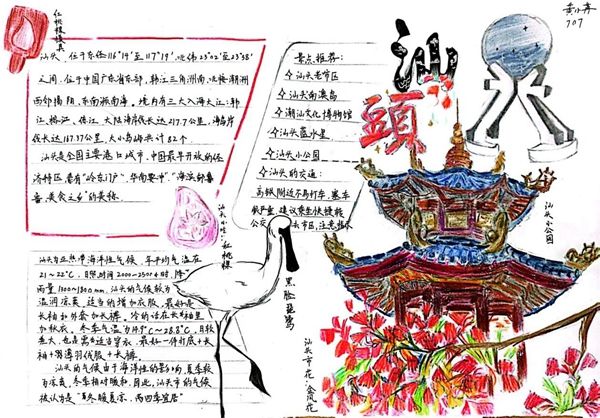 黄小卉
707
红桃粿模具
汕头，位于东经116°14′至117°19′，北纬23°02′至23°38′
之间，位于中国广东省东部，韩江三角洲南，北接潮州
西邻揭阳，东南濒南海。境内有三大入海大江：韩
江、榕江、练江，大陆海岸线长达217.7公里，海岛岸
线长达167.37公里，大小岛屿共计82个
汕头是全国主要港口城市，中国最早开放的经
济特区，素有"岭东门户、华南要冲"，"海滨邹鲁
香，美食之乡"的美称。
景点推荐：
汕头老市区
汕头南澳岛
潮汕文化博物馆
汕头蓝水星
汕头小公园
汕头的交通：
汕頭
汕头小公园
汕头小吃：红桃粿
黑脸琵鹭
汕头市花：金凤花
汕头为亚热带海洋性气候，年平均气温在
21～22℃，日照时间2000～2500小时，降
雨量1300～1800mm，汕头的气候较为
温润凉爽，适当的增加衣服，最好是
长袖和外套加长裤，冷的话在长袖里
加秋衣，冬季气温为14.5℃～28.8℃，日较
差大，也是需要适当穿衣，最好一件打底+长
袖+薄薄羽绒服+长裤。
汕头的气候由于海洋性的影响，夏季较
为凉爽，冬季相对暖和，因此，汕头市的气候
被认为是"冬暖夏凉，雨四季宜居"